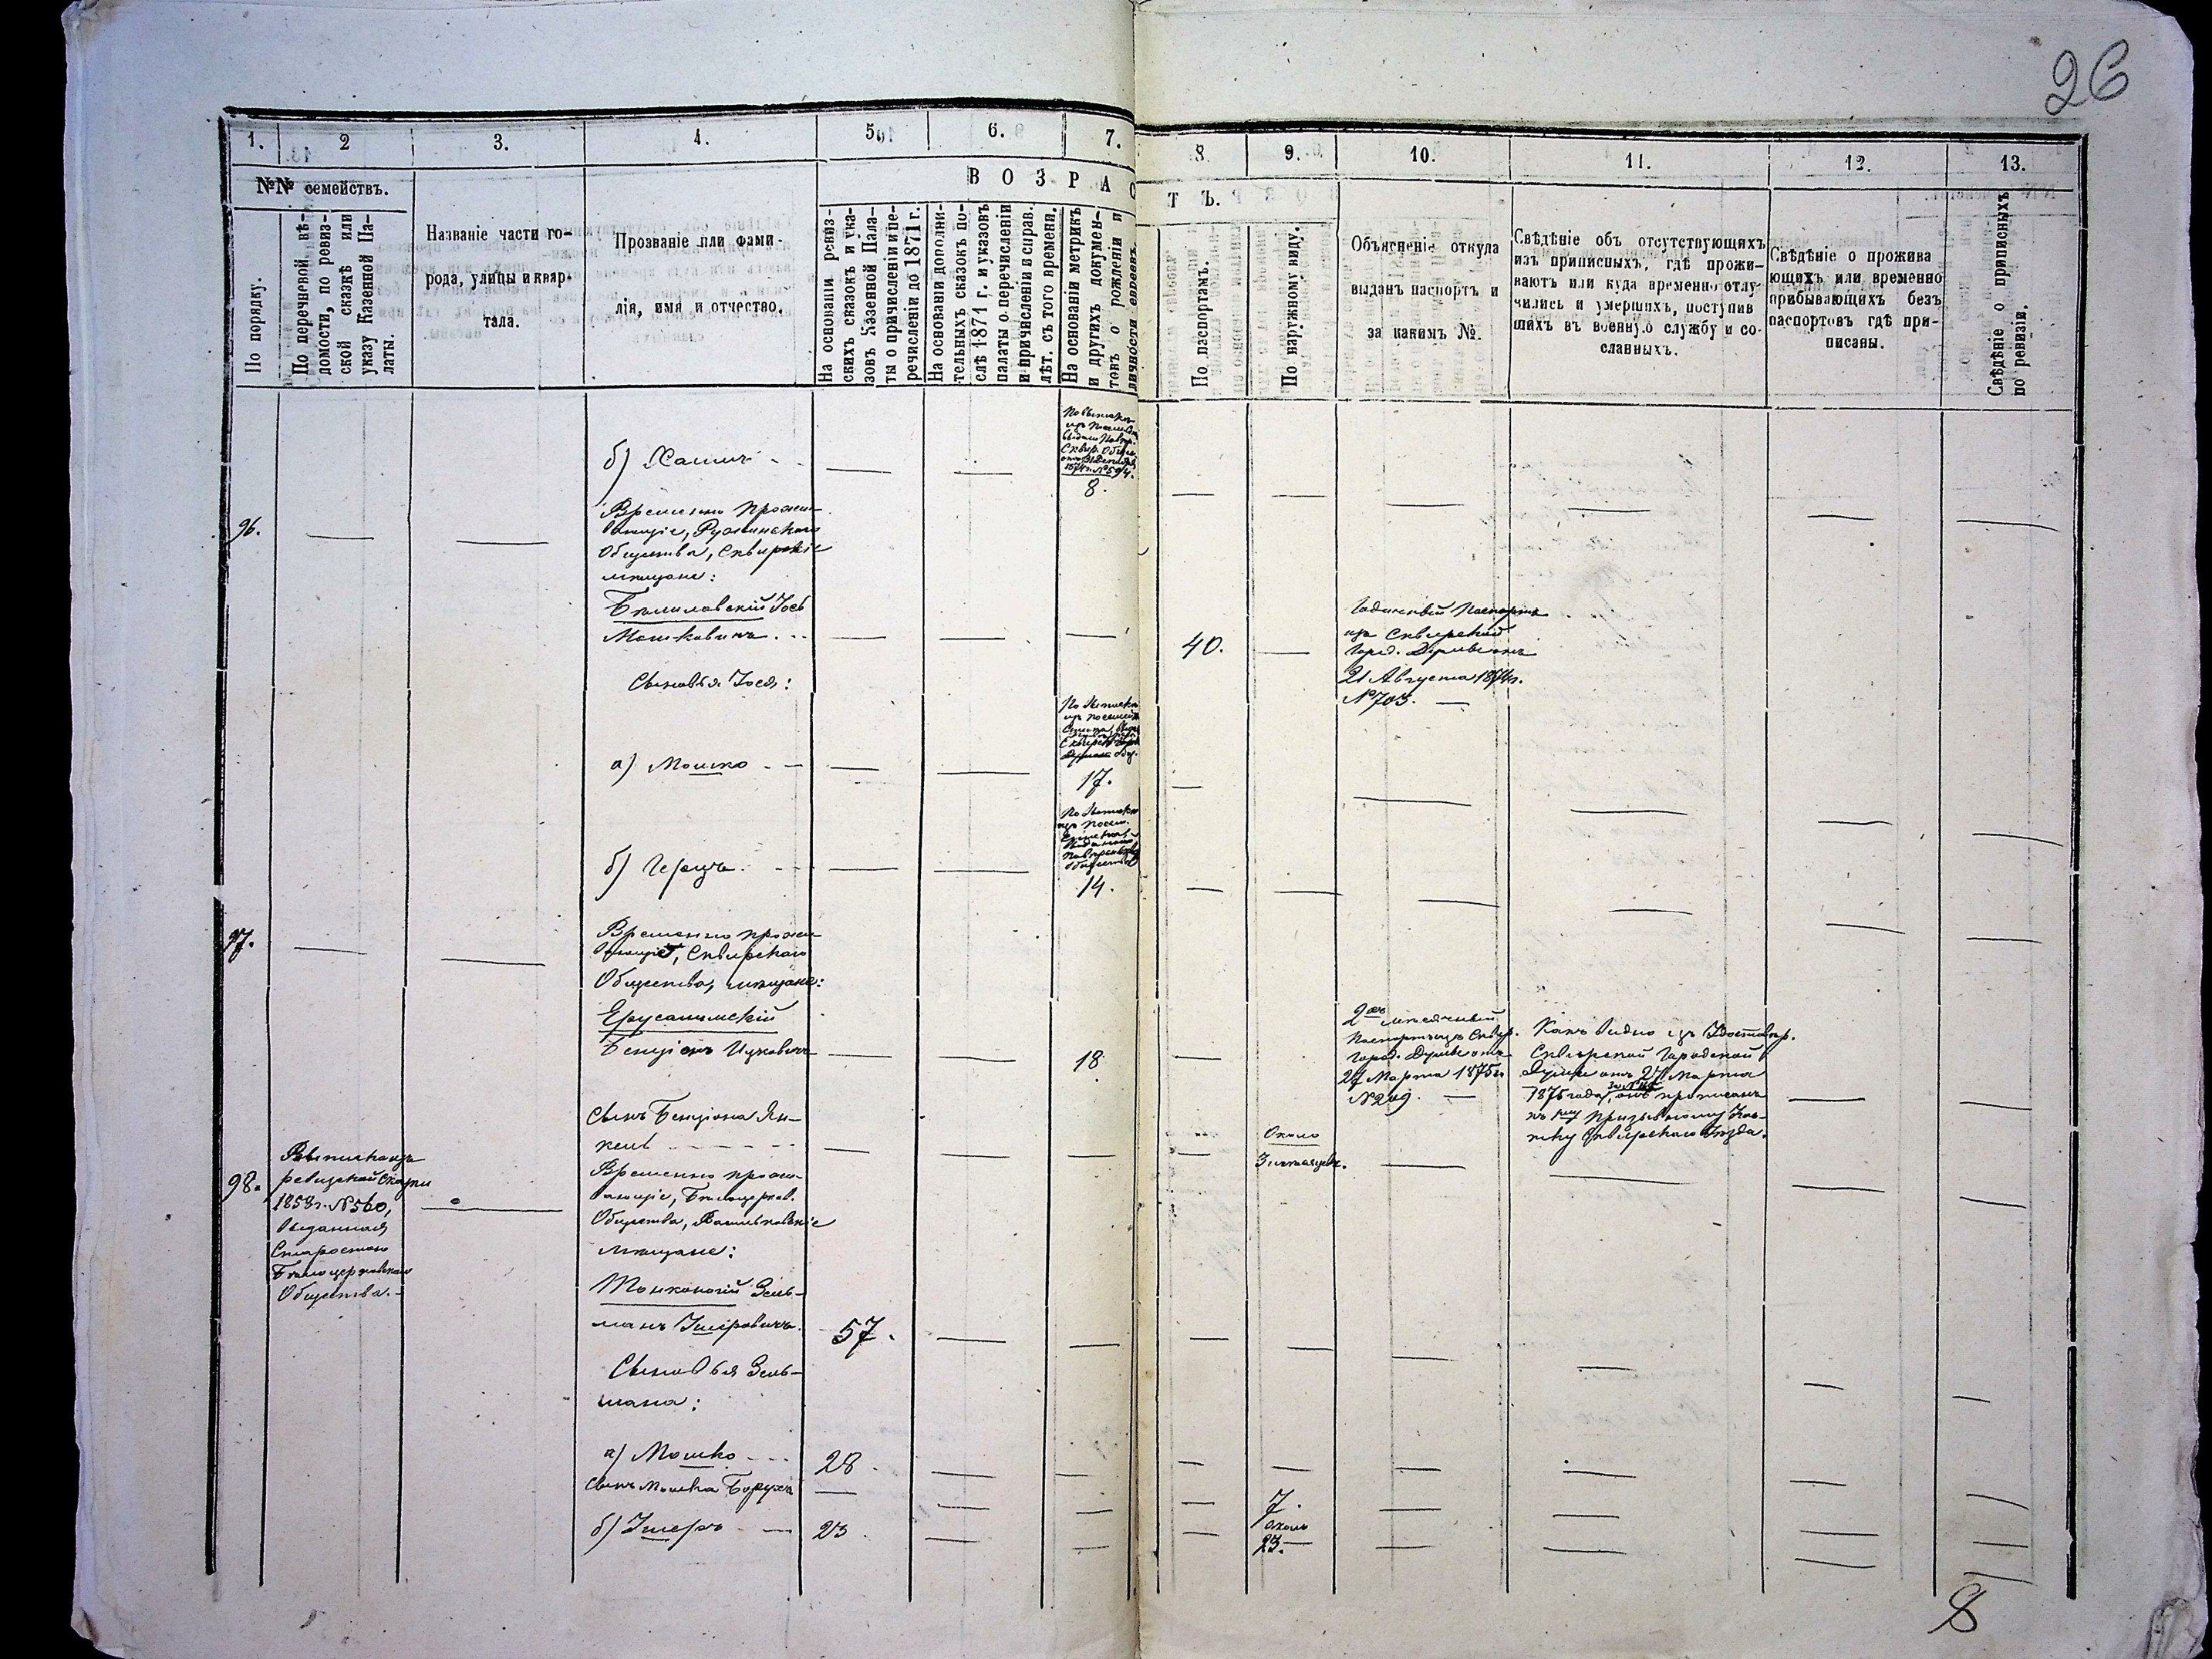 26
1. 2 3. 4. 5. 6. 7. 8. 9. 10. 11. 12. 13.
№№ семействъ.
В О З Р А С Т Ъ.
По порядку.
По перечневой вѣ-
домости, по ревиз-
ской сказкѣ или
указу Казенной Па-
латы.
Названіе части го-
рода, улицы и квар-
тала.
Прозваніе или фами-
лія, имя и отчество.
На основаніи ревиз-
скихъ сказокъ и ука-
зовъ Казенной Пала-
ты о причисленіи и пе-
речисленіи до 1871 г.
На основаніи дополни-
тельныхъ сказокъ по-
слѣ 1871 г. и указовъ
палаты о перечисленіи
и причисленіи и справ.
лѣт. съ того времени.
На основаніи метрикъ
и другихъ докумен-
товъ о рожденіи и
личности евреевъ.
По паспортамъ.
По наружному виду.
Объясненіе откуда
выданъ паспортъ и
за какимъ №.
Свѣдѣніе объ отсутствующихъ
изъ приписныхъ, гдѣ прожи-
ваютъ или куда временно отлу-
чились и умершихъ, поступив
шихъ въ военную службу и со-
сланныхъ.
Свѣдѣніе о прожива
ющихъ или временно
прибывающихъ безъ
паспортовъ гдѣ при-
писаны.
Свѣдѣніе о приписныхъ
по ревизіи.
По выпискѣ
1874 г. № 594.
б) Хаимъ - - — — 8. — — — — — —
96. — — Временно прожи-
вающіе, Ружинскаго
Общества, Сквирскіе
мѣщане:
Бѣлиловскій Іось
Мошковичъ. - - — — — 40. —
Годичный Паспортъ
изъ Сквирской
Город. Думы отъ
21 Августа 1874 г.
№ 703. —
Сыновья Іося:
По выпискѣ
а) Мошко - — — — 17. — — — — —
По выпискѣ
б) Герцъ. - — — — 14. — — — — — —
97. — — Временно прожи-
вающіе, Сквирскаго
Общества, мѣщане:
Ерусалимскій
Бенціонъ Ицковичъ — — 18. —
2хъ мѣсячный
Паспортъ изъ Сквир.
Город. Думы отъ
27 Марта 1875 г.
№ 209. —
Какъ видно изъ Удостовѣр.
Сквирской Городской
Думы отъ 27 Марта
1875 года, онъ приписанъ
къ призывному уча-
стку Сквирскаго Уѣзда.
Сынъ Бенціона Ян-
кель - - - - — — — — Около
3 мѣсяцевъ. — — — —
98. Выписка изъ
ревизской сказки
1858 г. № 560,
выданная
Старостою
Бѣлоцерковскаго
Общества. -
— Временно прожи-
вающіе, Бѣлоцерков.
Общества, Васильковскіе
мѣщане:
Тонконогій Зель-
манъ Умеровичъ. 57. — — — — — — — —
Сыновья Зель-
мана:
а) Мошко - - - 28. — — — — — — — —
Сынъ Мошка Борухъ — — — — 7. — — — —
б) - — 23. — — — около
23. — — — —
8